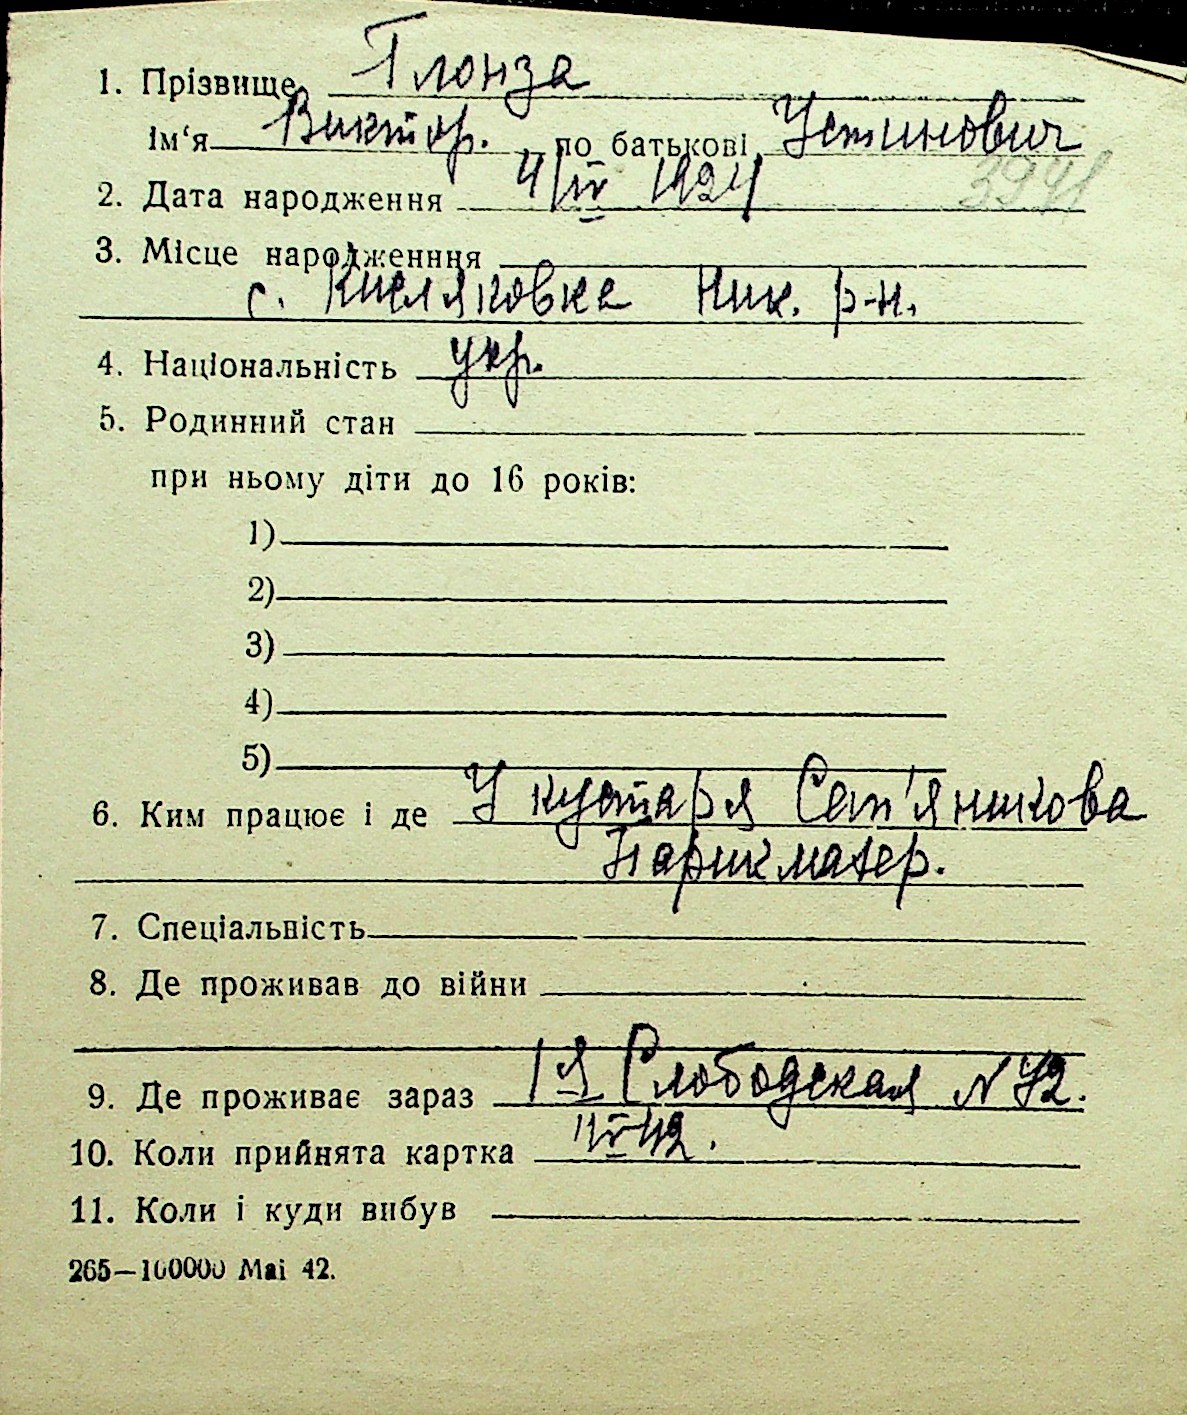 1. Прізвище Глонза
Ім‘я Виктор. по батькові Устинович
2. Дата народження 4/IV 1924 3941
3. Місце народженння
с. Кисляковка Ник. р-н.
4. Національність укр.
5. Родинний стан
при ньому діти до 16 років:
1)
2)
3)
4)
5)
6. Ким працює і де У кустаря
Парикмахер.
7. Спеціальність
8. Де проживав до війни
9. Де проживає зараз 1я Слободская N 72.
10. Коли прийнята картка
11. Коли і куди вибув
265—100000 Mai 42.